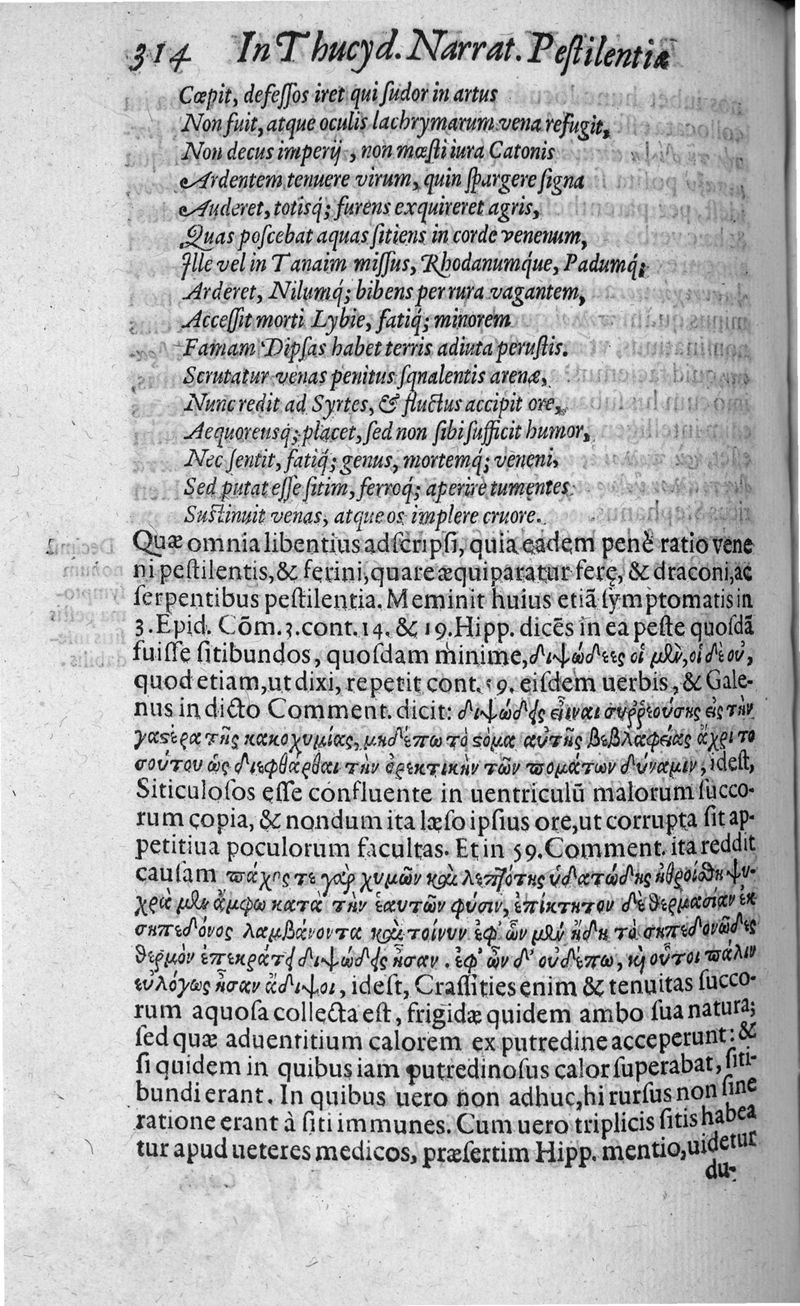 314 In Thucyd. Narrat. Pestilentiæ
Cœpit, defessos iret qui sudor in artus
Non fuit, atque oculis lachrymarum vena refugit,
Non decus imperij, non mœsti iura Catonis
Ardentem tenuere virum, quin spargere signa
Auderet, totisq́; furens exquireret agris,
Quas poscebat aquas sitiens in corde venenum,
Ille vel in Tanaim missus, Rhodanumq́ue, Padumq́;
Arderet, Nilumq́; bibens per rura vagantem,
Accessit morti Lybie, fatiq́; minorem
Famam Dipsas habet terris adiuta perustis.
Scrutatur venas penitus sqnalentis arenæ,
Nunc redit ad Syrtes, & fluctus accipit ore,
Aequoreusq́; placet, sed non sibi sufficit humor,
Nec sentit, fatiq́; genus, mortemq́; veneni,
Sed putat esse sitim, ferroq́; aperire tumentes
Sustinuit venas, atque os implere cruore.
Quæ omnia libentius adscripsi, quia eadem penè ratio vene
ni pestilentis, & ferini, quare æquiparatur ferę, & draconi, ac
serpentibus pestilentia. Meminit huius etiã symptomatis in
3. Epid. Cõm. 3. cont. 14. & 19. Hipp. dicẽs in ea peste quosdã
fuisse sitibundos, quosdam minime, διψώδεες οἱ μὲν, οἱ δὲ οὐ,
quod etiam, ut dixi, repetit cont. 59. eisdem uerbis, & Gale-
nus in dicto Comment. dicit: διψώδεις εἶναι συῤῥεούσης εἰς τὴν
γαστέρα τῆς κακοχυμίας, μηδέπω τὸ στόμα αὐτῆς βεβλαφείας ἄχρι το
σούτου ὡς διεφθάρθαι τὴν ὀρεκτικὴν τῶν πομάτων δύναμιν, idest,
Siticulosos esse confluente in uentriculũ malorum succo-
rum copia, & nondum ita læso ipsius ore, ut corrupta sit ap-
petitiua poculorum facultas. Et in 59. Comment. ita reddit
causam πάχος τε γὰρ χυμῶν καὶ λεπτότης ὑδατώδης ἠθροίσθη ψυ-
χρὰ μὲν ἄμφω κατὰ τὴν ἑαυτῶν φύσιν, ἐπίκτητον δὲ θερμασίαν ἐκ
σηπεδόνος λαμβάνοντα καὶ τοίνυν ἐφ' ὧν μὲν ἤδη τὸ σηπεδονῶδες
θερμὸν ἐπεκράτει διψώδεις ἦσαν. ἐφ' ὧν δ' οὐδέπω, καὶ οὗτοι πάλιν
εὐλόγως ἦσαν ἄδιψοι, idest, Crassities enim & tenuitas succo-
rum aquosa collecta est, frigidæ quidem ambo sua natura;
sed quæ aduentitium calorem ex putredine acceperunt: &
si quidem in quibus iam putredinosus calor superabat, siti-
bundi erant. In quibus uero non adhuc, hi rursus non sine
ratione erant à siti immunes. Cum uero triplicis sitis habea
tur apud ueteres medicos, præsertim Hipp. mentio, uidetur
du-